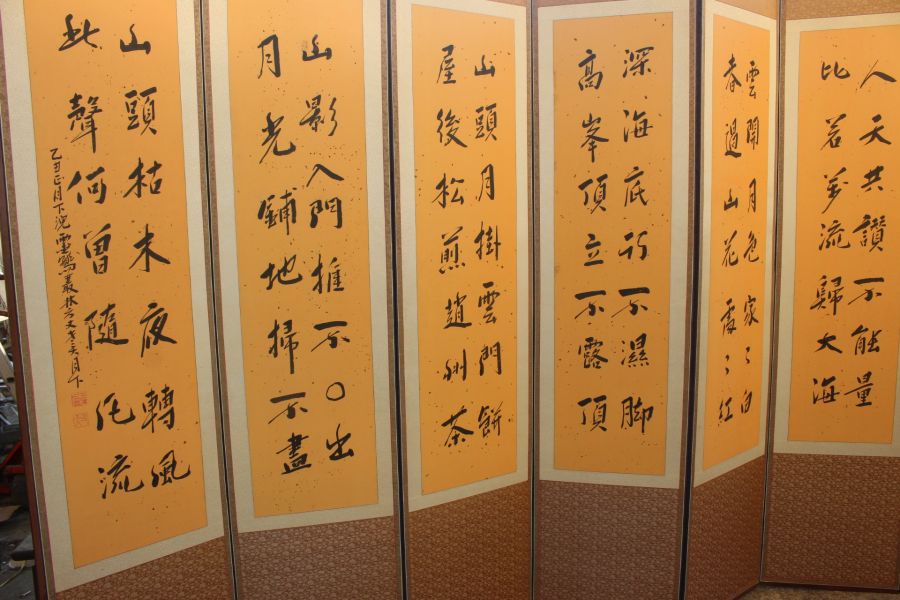 人天共讚不能量
比若萬流歸大海
雲開月色家〻白
春過山花處〻紅
深海底行不濕脚
高峯頂立不露頂
山頭月掛雲門餅
屋後松煎趙州茶
山影入門推不○出
月光鋪地掃不盡
山頭枯木夜轉風
此聲何曾隨化流
乙丑正月下浣靈鷲叢林方丈 月下